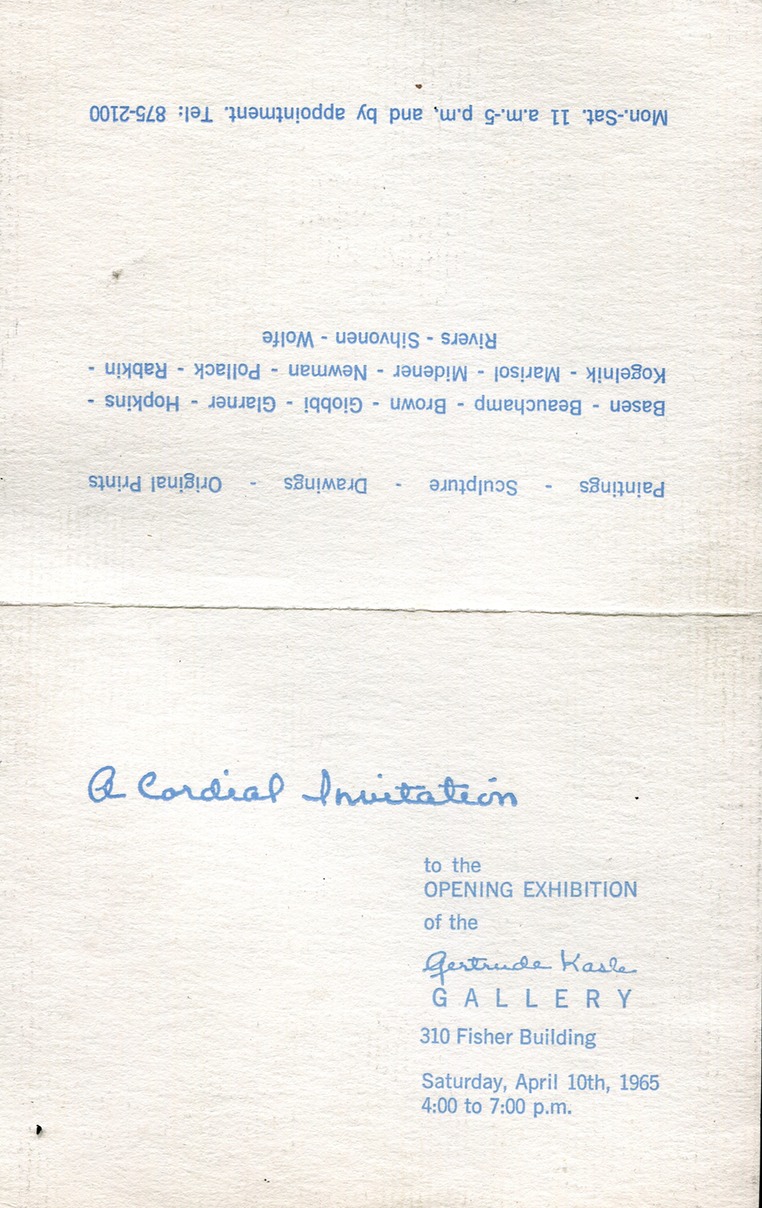 A Cordial Invitation
to the
OPENING EXHIBITION
of the
Gertrude Kasle
GALLERY
310 Fisher Building
Saturday, April 10th, 1965
4:00 to 7:00 p.m.
Paintings - Sculpture - Drawings - Original Prints
Basen - Beauchamp - Brown - Giobbi - Glarner - Hopkins -
Kogelnik - Marisol - Midener - Newman - Pollack - Rabkin -
Rivers - Sihvonen - Wolfe
Mon.-Sat. 11 a.m.-5 p.m. and by appointment. Tel: 875-2100